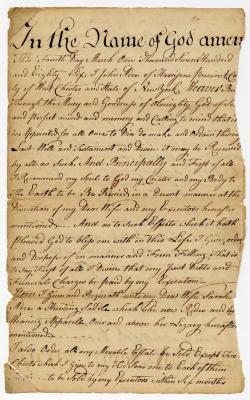 In the Name of God amen
This Fourth Day March One Thousand Seven Hundred
and Eighty Six I John Rice of Harrisons Purchase
of West Chester and State of New York Weaver Being
through the Mercy and Goodness of Almighty God of
and perfect mind and memory and Calling to mind that it
is Appointed for all Once to Die do make and Ordain this my
Last Will and Testament and Desire it may be Received
by all as Such And Principally and First of all
I Recommend my Soul to God my Creator and my Body to
the Earth to be Buried in a Decent manner at the
Discretion of my Dear Wife and my Executors hereafter
mentioned And as to Such Effects Such it hath
Pleased God to bless me with in this Life I Give order
and Dispose of in manner and Form Following That is
to Say First of all I Desire that my Just Debts and
Funeral Charges be paid by my Executors
Item I Give and Bequeath unto my Dear Wife Sarah
Rice a Hunting Saddle which She now Rides and her
Wearing Apparel Over and above her Legacy hereafter
mentioned
I also Order all my Movable Estate be Sold Except two
which I Give to my two Sons one to Each of them
to be Sold by my Executors within Six months